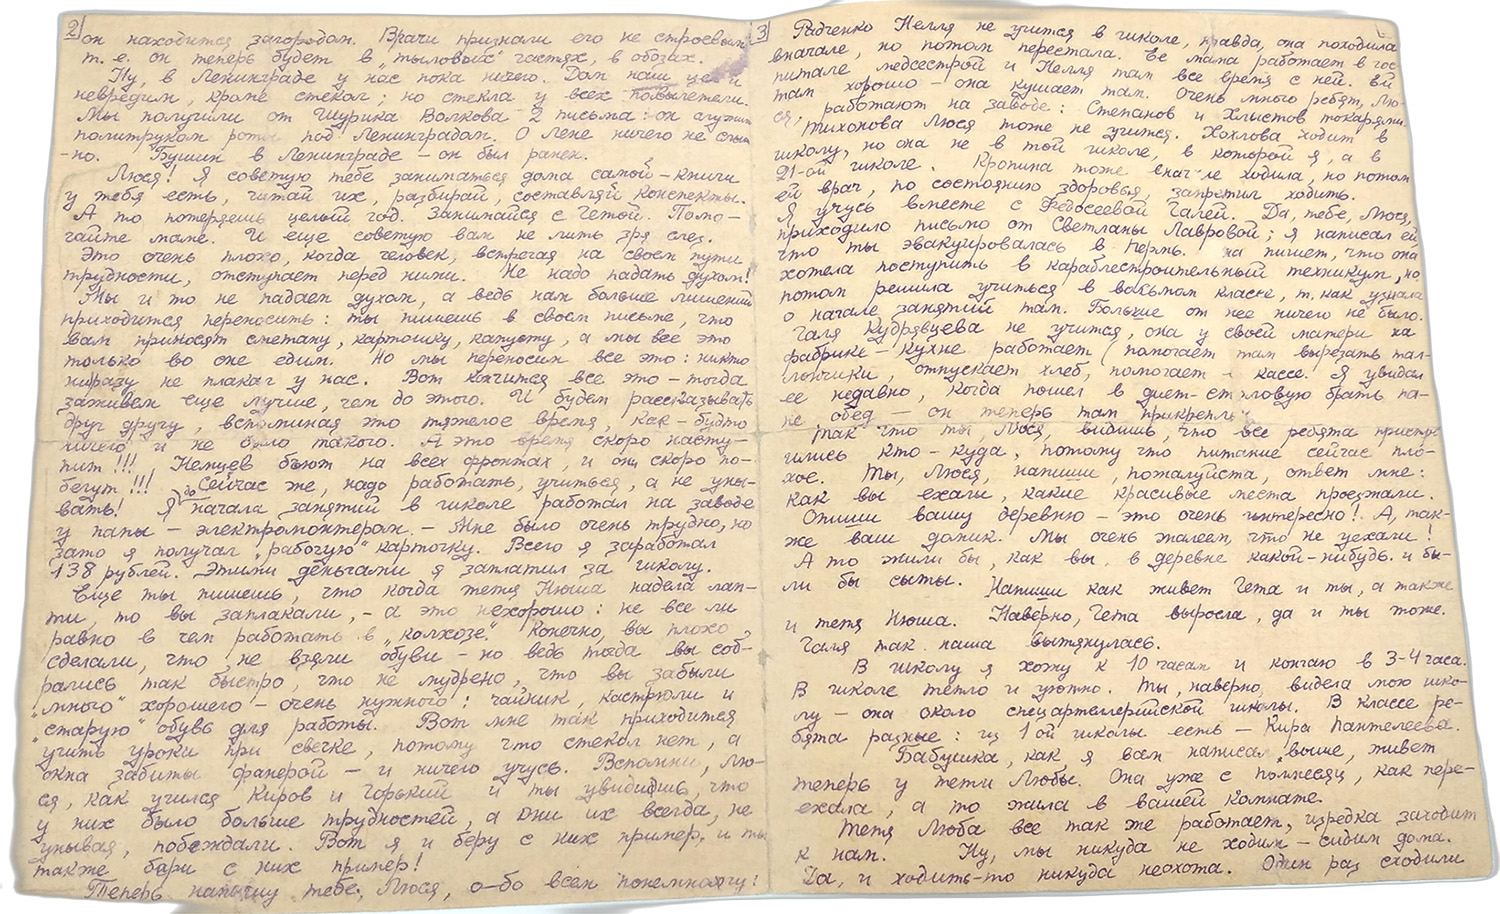 2
он находится загородом. Врачи признали его не строевым
т. е. он теперь будет в „тыловых" частях, в обозах.
Ну, в Ленинграде у нас пока ничего. Дом наш цел и
невредим, кроме стекол; но стекла у всех повылетели.
Мы получили от Шурика Волкова 2 письма: он служит
политруком роты под Ленинградом. О Лене ничего не слыш
-но. Бушин в Ленинграде – он был ранен.
Люся! Я советую тебе заниматься дома самой – книги
у тебя есть, читай их, разбирай, составляй конспекты.
А то потеряешь целый год. Занимайся с Гетой. Помо-
гайте маме. И еще советую вам не лить зря слез.
Это очень плохо, когда человек, встречая на своем пути
трудности, отступает перед ними. Не надо падать духом!
Мы и то не падаем духом, а ведь нам больше лишений
приходится переносить: ты пишешь в своем письме, что
вам приносят сметану, картошку, капусту, а мы все это
только во сне едим. Но мы переносим все это: никто
ниразу не плакал у нас. Вот кончится все это – тогда
заживем еще лучше, чем до этого. И будем рассказывать
друг другу, вспоминая это тяжелое время, как-будто
ничего и не было такого. А это время скоро насту-
пит!!! Немцев бьют на всех фронтах, и они скоро по-
бегут!!! Сейчас же, надо работать, учиться, а не уны-
вать! Я до начала занятий в школе работал на заводе
у папы – электромонтером. – Мне было очень трудно, но
зато я получал „рабочую" карточку. Всего я заработал
138 рублей. Этими деньгами я заплатил за школу.
Еще ты пишешь, что когда тетя Нюша надела лап-
ти, то вы заплакали, – а это нехорошо: не все ли
равно в чем работать в „колхозе." Конечно, вы плохо
сделали, что не взяли обуви – но ведь тогда вы соб-
рались так быстро, что не мудрено, что вы забыли
„много" хорошего – очень нужного: чайник, кастрюли и
„старую" обувь для работы. Вот мне так приходится
учить уроки при свечке, потому что стекол нет, а
окна забиты фанерой – и ничего учусь. Вспомни, Лю-
ся, как учился Киров и Горький и ты увидишь, что
у них было больше трудностей, а они их всегда, не
унывая, побеждали. Вот я и беру с них пример. и ты
также бери с них пример!
Теперь напишу тебе, Люся, о-бо всем понемногу:
3
Радченко Нелля не учится в школе, правда, она походила
вначале, но потом перестала. Ее мама работает в гос
питале медсестрой и Нелля там все время с ней. ей
там хорошо – она кушает там. Очень много ребят, Лю-
ся, работают на заводе: Степанов и Хлыстов токарями.
Тихонова Люся тоже не учится. Хохлова ходит в
школу, но она не в той школе, в которой я, а в
21-ой школе. Кропина тоже вначале ходила, но потом
ей врач, по состоянию здоровья, запретил ходить.
Я учусь вместе с Федосеевой Галей. Да, тебе, Люся,
приходило письмо от Светланы Лавровой; я написал ей
что ты эвакуировалась в Пермь. на пишет, что она
хотела поступить в караблестроительный техникум, но
потом решила учиться в восьмом классе, т. как узнала
о начале занятий там. Больше от нее ничего не было.
Галя Кудрявцева не учится, она у своей матери на
фабрике-кухне работает (помогает там вырезать тал-
лончики, отпускает хлеб, помогает кассе. Я увидал
ее недавно, когда пошел в диет-столовую брать па-
пе обед – он теперь там прикреплен.
Так что ты, Люся, видишь, что все ребята пристро
ились кто-куда, потому что питание сейчас пло-
хое. Ты, Люся, напиши, пожалуйста, ответ мне:
как вы ехали, какие красивые места проезжали.
Опиши вашу деревню – это очень интересно! А, так-
же ваш домик. Мы очень жалеем, что не уехали!
А то жили бы, как вы, в деревне какой-нибудь и бы-
ли бы сыты. Напиши как живет Гета и ты, а также
и тетя Нюша. Наверно, Гета выросла, да и ты тоже.
Галя так наша вытянулась.
В школу я хожу к 10 часам и кончаю в 3-4 часа.
В школе тепло и уютно. Ты, наверно, видела мою шко-
лу – она около спецартеллерийской школы. В классе ре-
бята разные: из 1ой школы есть – Кира Пантелеева.
Бабушка, как, я вам написал выше, живет
теперь у тети Любы. Она уже с полмесяц, как пере-
ехала, а то жила в вашей комнате.
Тетя Люба все так же работает, изредка заходит
к нам. Ну, мы никуда не ходим – сидим дома.
Да, и ходить-то никуда неохота. Один раз сходили